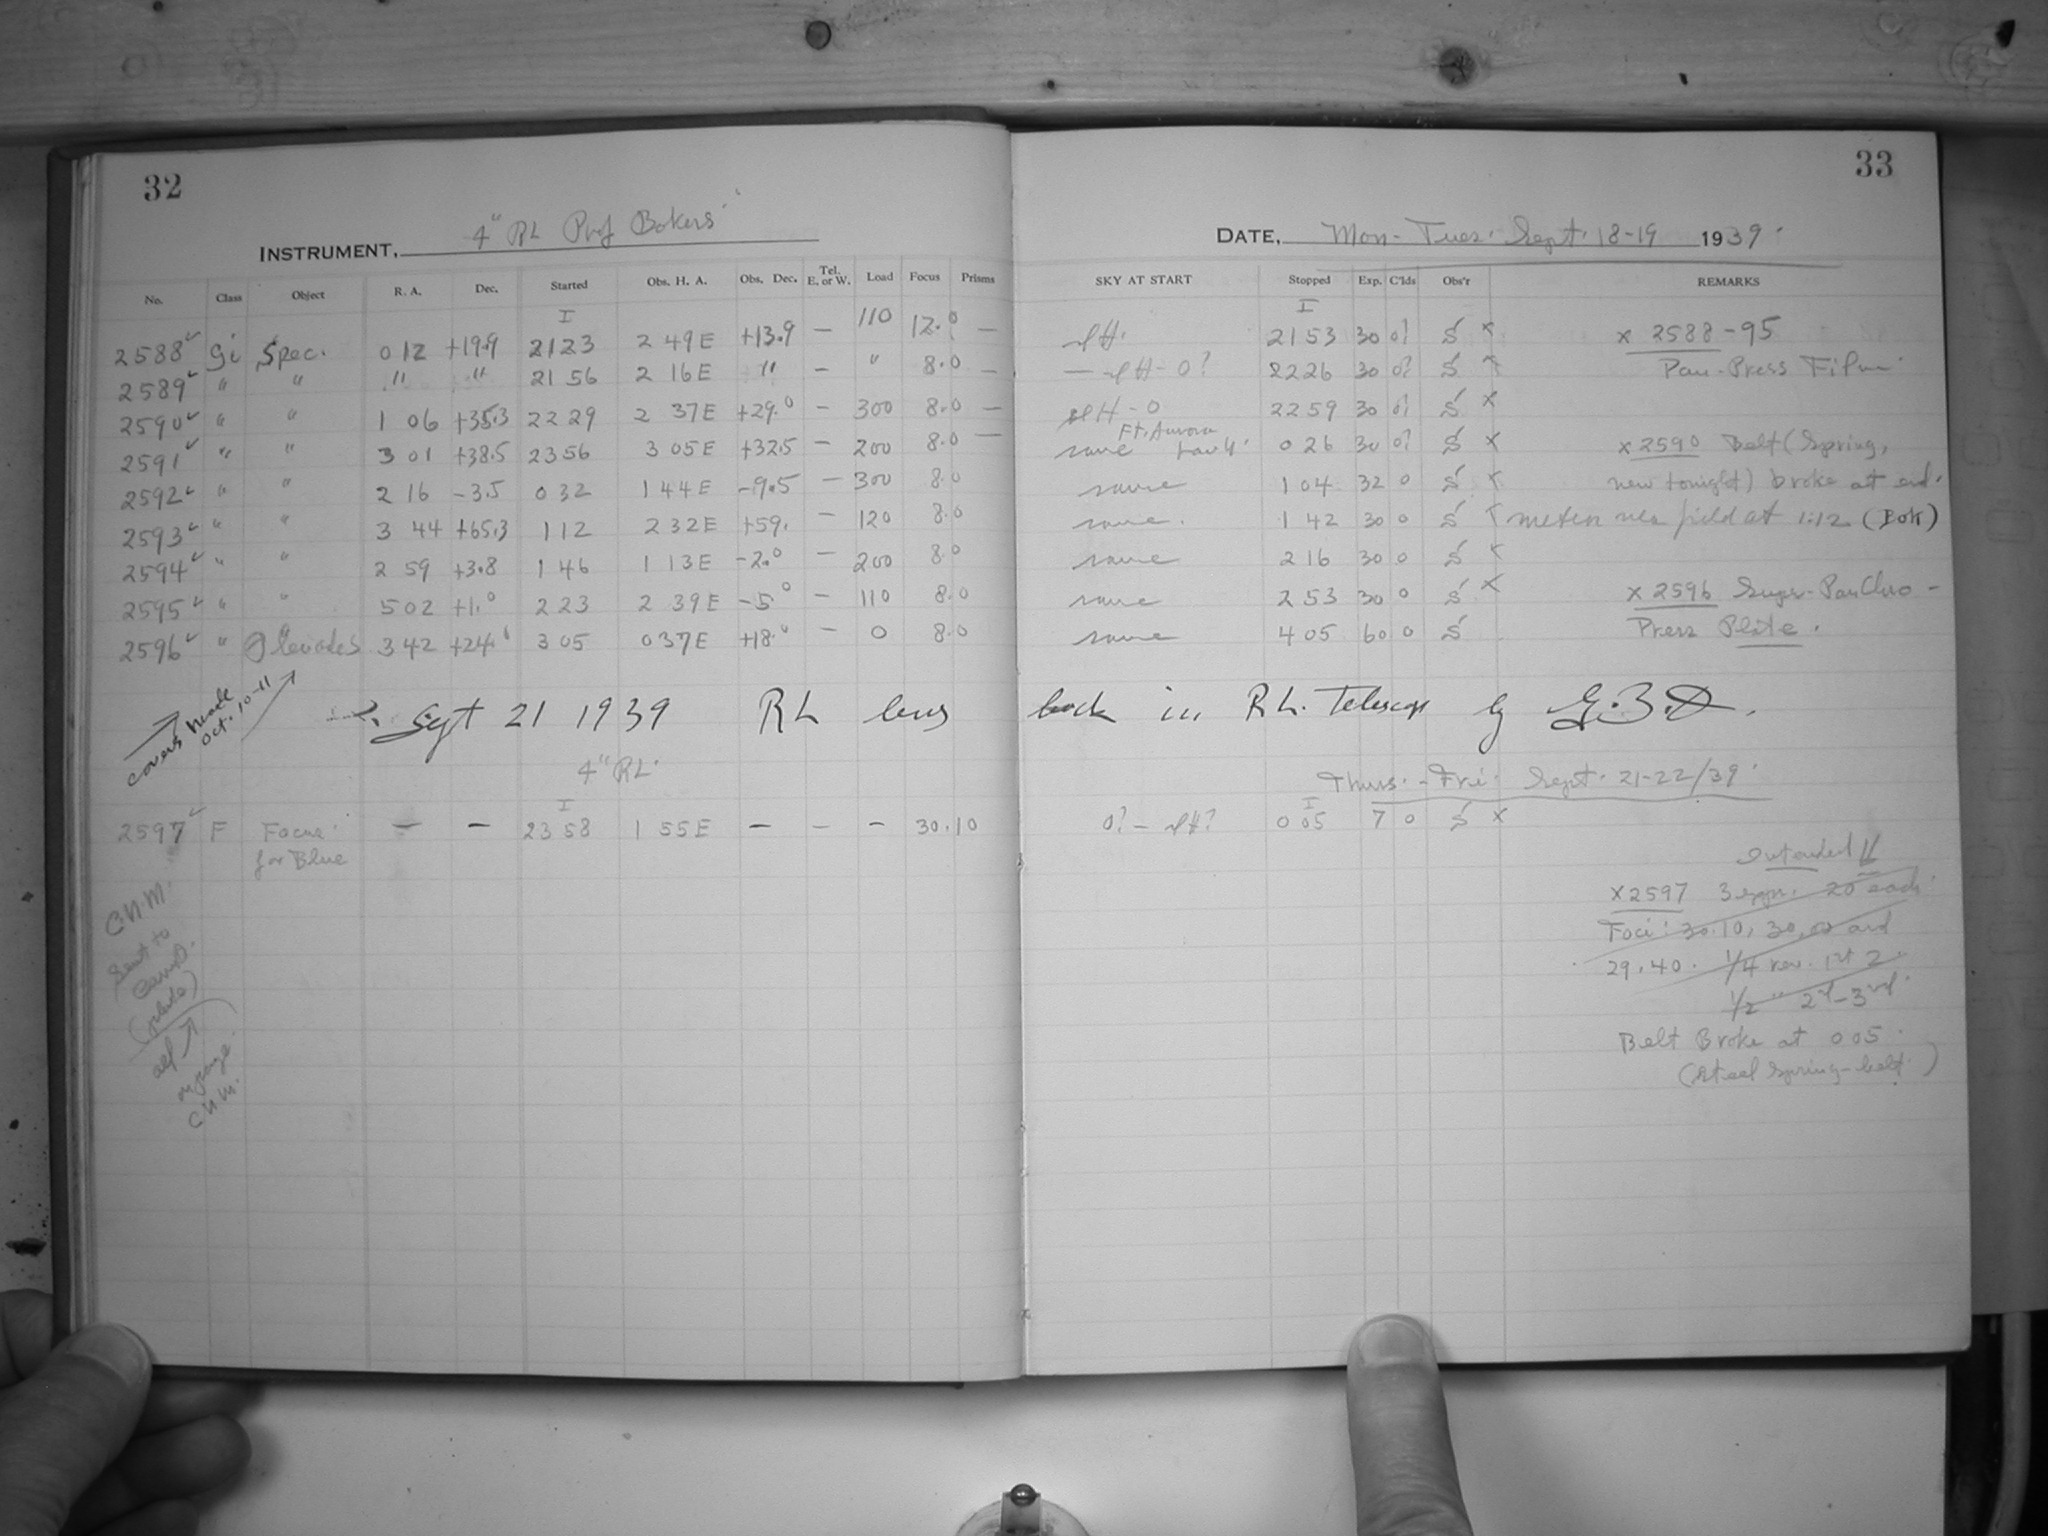 32
33
INSTRUMENT, 4" RL Prof Bokers
DATE, Mon-Tues. Sept. 18-19 1939.
No. Class Object R. A. Dec. Started Obs. H. A. Obs. Dec. Tel. E. or W. Load Focus Prisms SKY AT START Stopped Exp. C'lds Obs'r REMARKS
I I
2588 Gi Spec. 0 12 +19.9 2123 2 49 E +13.9 — 110 12.0 — 2153 30 0? S x x 2588-95
2589 " " " " 2156 2 16 E " — " 8.0 — 2226 30 0? S Pan-Press Film
2590 " " 1 06 +35.3 2229 2 37 E +29.0 — 300 8.0 — 2259 30 0? S x
Ft. Aurora
2591 " " 3 01 +38.5 2356 3 05 E +32.5 — 200 8.0 — same 0 26 30 0? S x x 2590 Belt (Spring,
2592 " " 2 16 -3.5 0 32 1 44 E -9.5 — 300 8.0 same 1 04 32 0 S x new tonight) broke at end.
2593 " " 3 44 +65.3 1 12 2 32 E +59. — 120 8.0 same. 1 42 30 0 S field at 1:12 (Bok)
2594 " " 2 59 +3.8 1 46 1 13 E -2.0 — 200 8.0 same 2 16 30 0 S
2595 " " 5 02 +1.0 2 23 2 39 E -5.0 — 110 8.0 same 2 53 30 0 S x x 2596 Super-PanChro-
2596 " Pleiades 3 42 +24.0 3 05 0 37 E +18.0 — 0 8.0 same 4 05 60 0 S Press Plate.
covers made
Oct. 10-11
Sept 21 1939 RL lens back in RL. Telescope by G.Z.D.
4" RL.
Thurs.-Fri. Sept. 21-22/39.
I I
2597 F Focus 23 58 1 55 E — — — 30.10 0? — 0 05 7 0 S x
for Blue
intended
x 2597 3 exps. 20 each.
Foci: 30.10, 30.00 and
29.40. 1/4 rev. 1st 2.
1/2 " 2d-3rd.
Belt Broke at 0 05.
(Steel Spring-belt.)
C.H.M.
Sent to
Camb.
(plate)
on page
C.H.M.